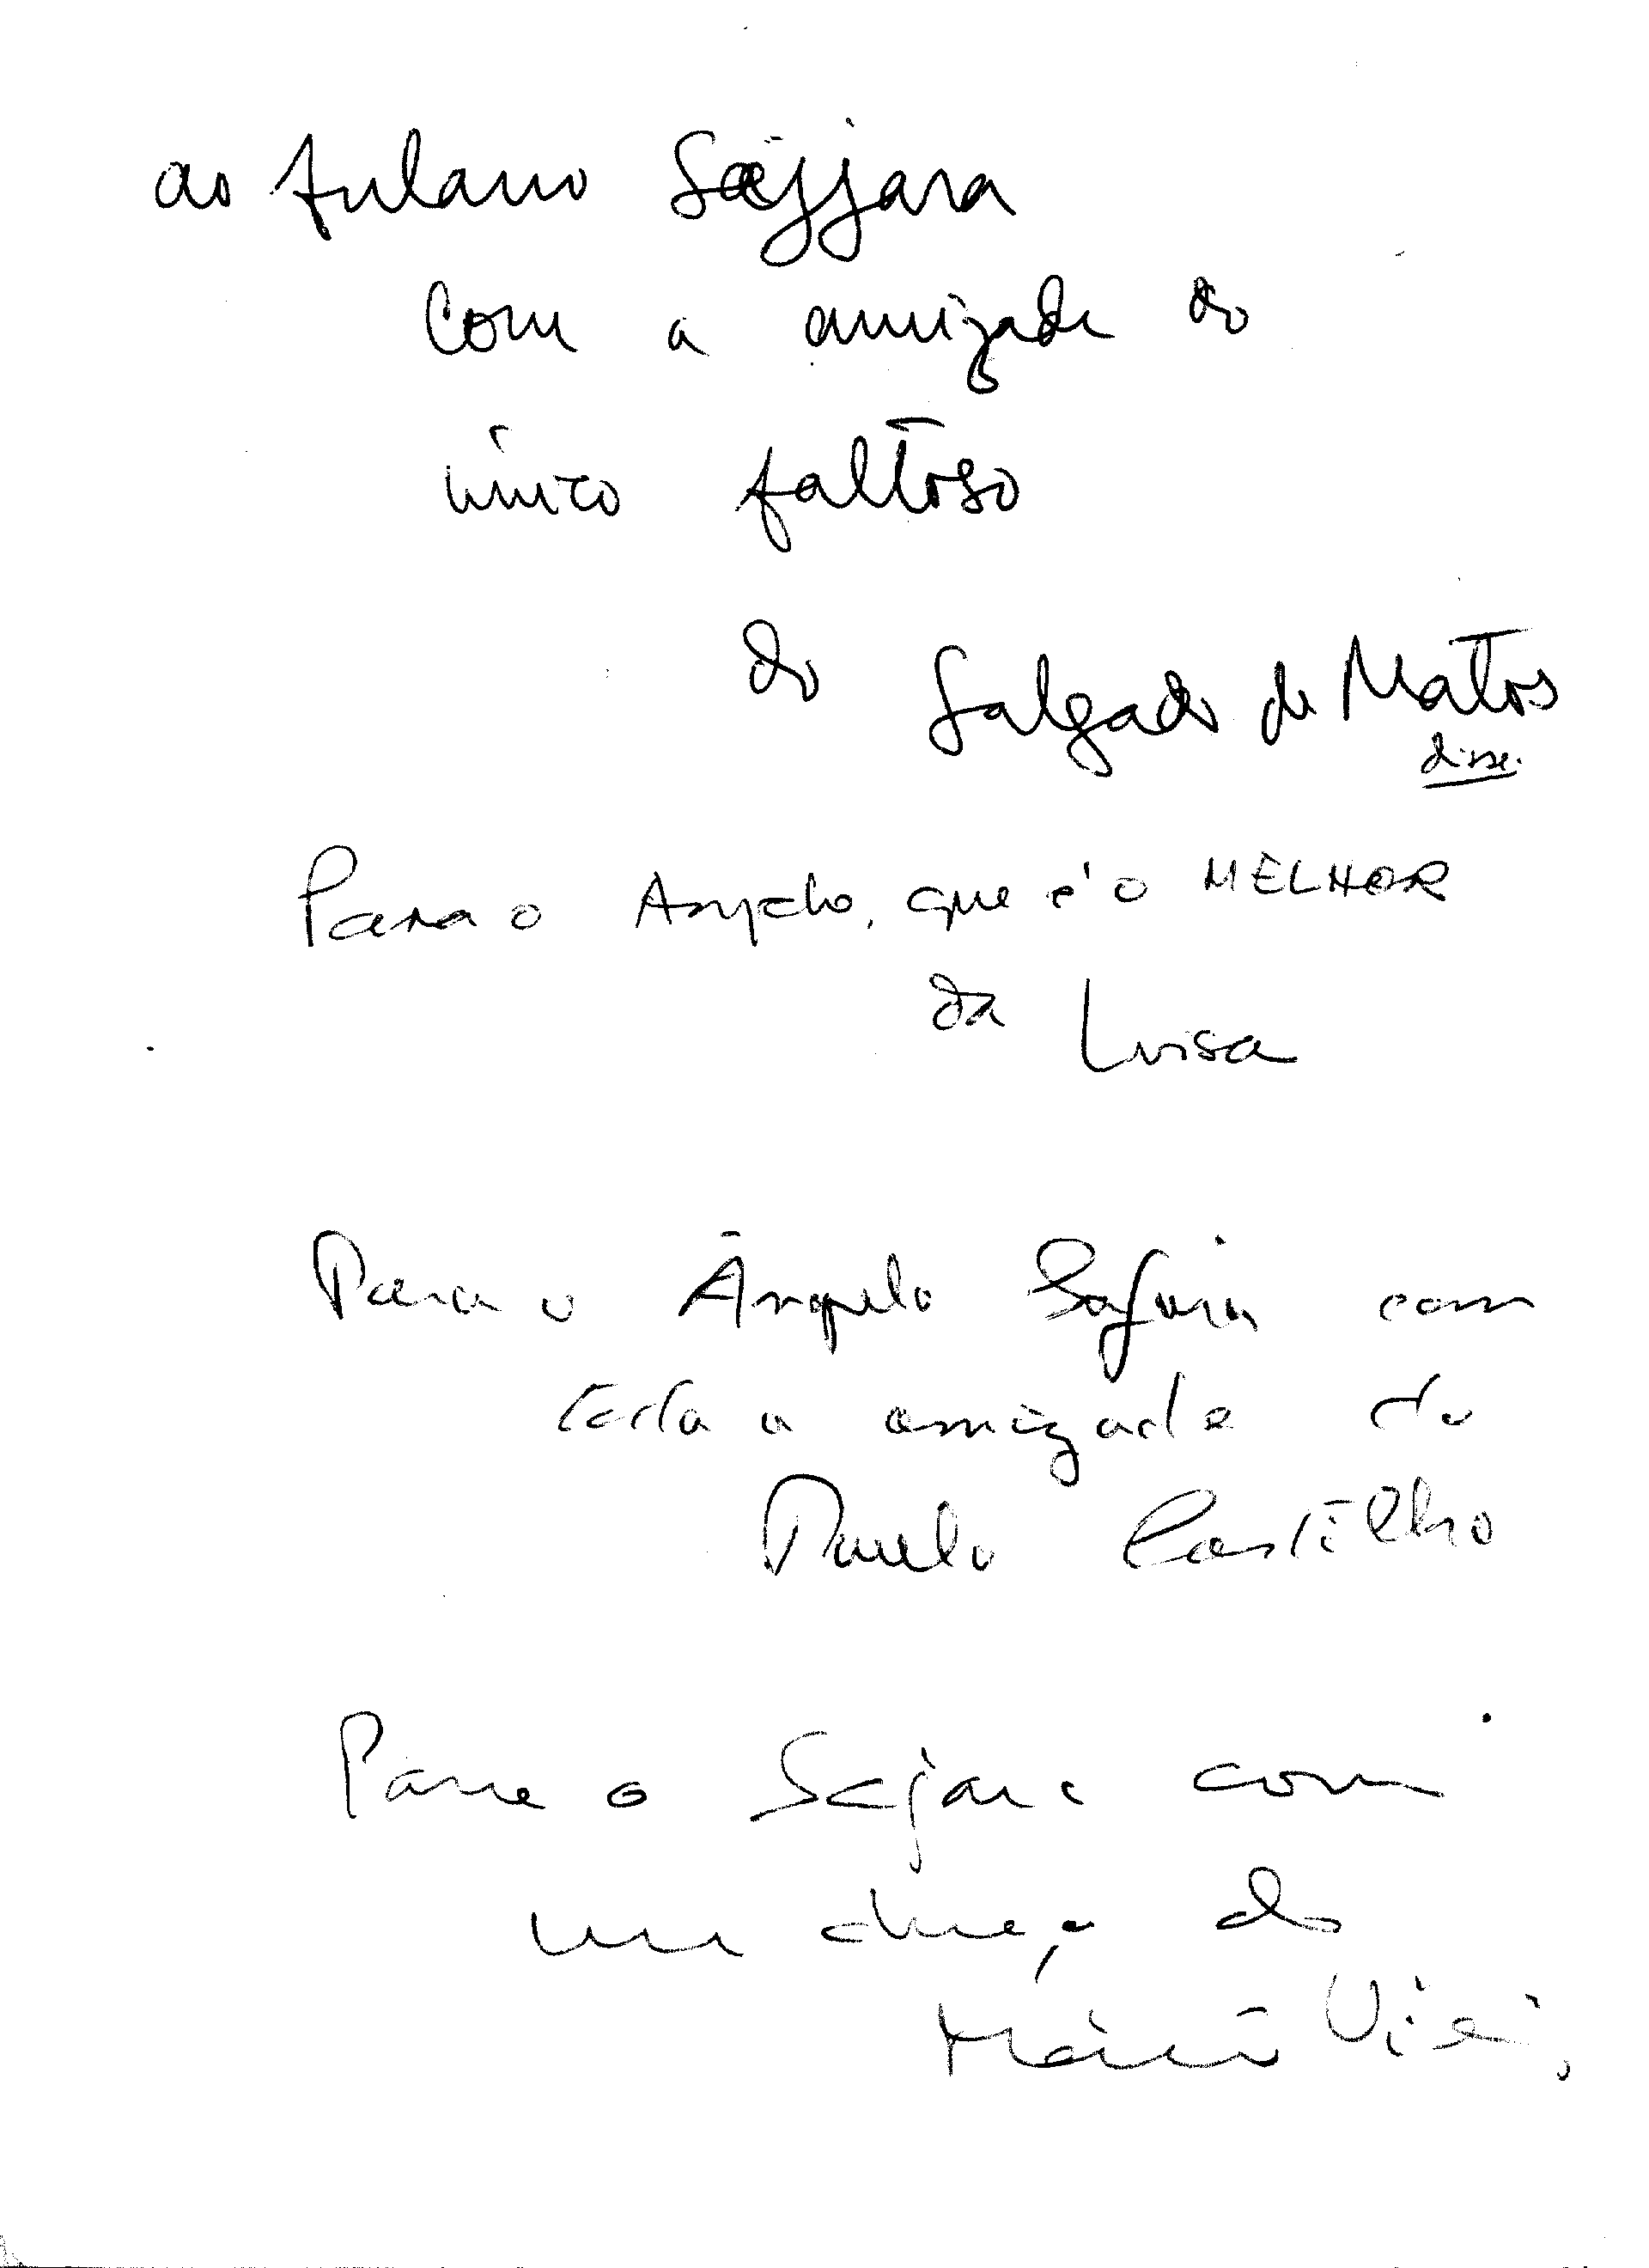 ao fulano Säjjara
com a amizade do
único faltoso
do Salgado de Matos
disse.
Para o Angelo, que é o MELHOR
da Luisa
Para o Ângelo Safara com
toda a amizade do
Paulo Castilho
Para o Sajara com
um abraço do
Mário